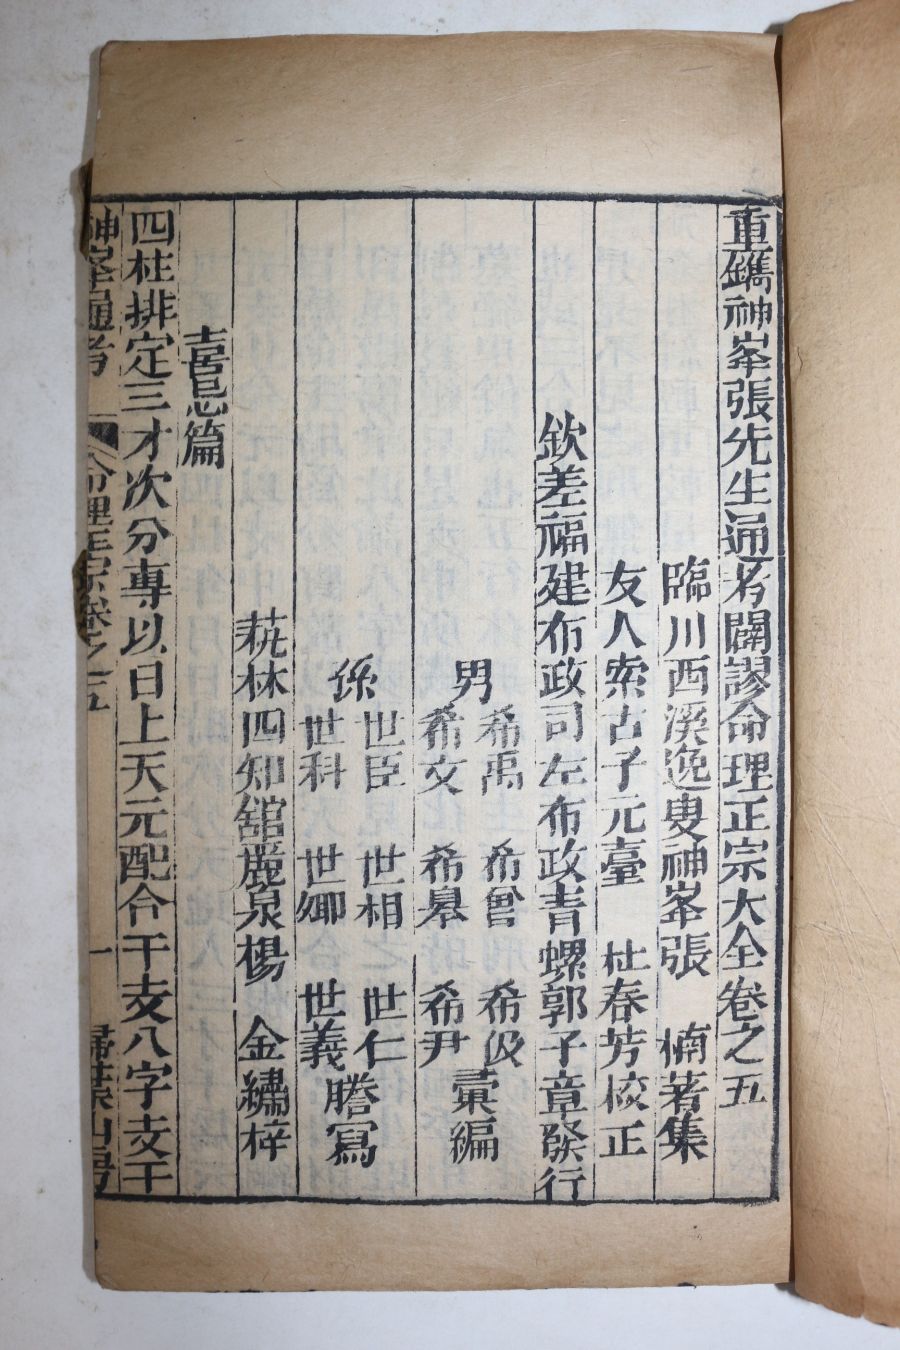 重鐫神峯張先生通考闢謬命理正宗大全卷之五
臨川西溪逸叟神峯張 楠著集
友人索古子元臺 杜春芳校正
欽差福建布政司左布政青螺郭子章發行
男 希禹 希曾 希伋
希文 希皋 希尹 彙編
孫 世臣 世相 世仁
世科 世卿 世義 謄寫
莸林四知舘麗泉楊 金繡梓
喜忌篇
四柱排定三才次分專以日上天元配合干支八字支干
神峯通考 命理正宗卷之五 一 掃葉山房